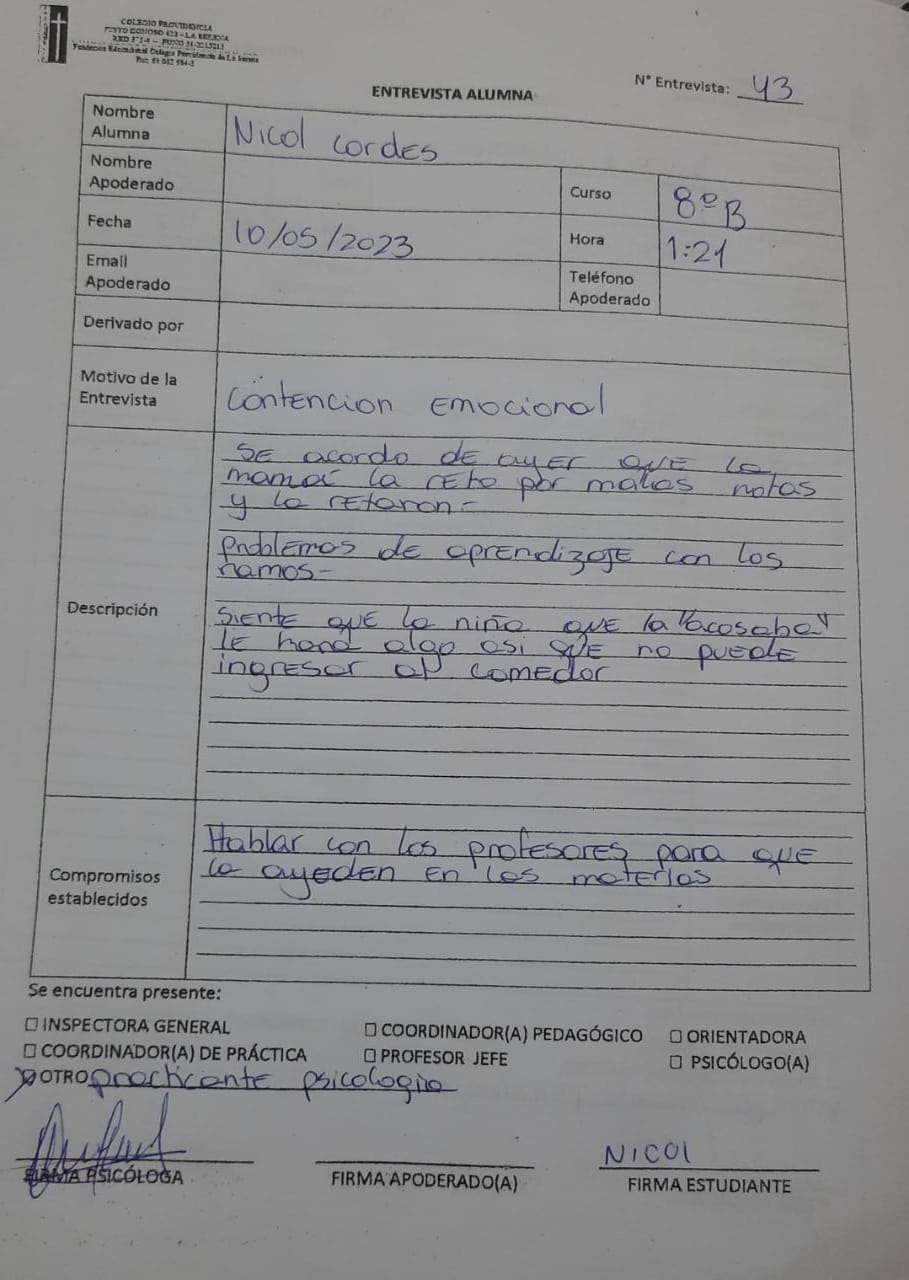 COLEGIO PROVIDENCIA
JUSTO DONOSO 420 - LA SERENA
Fundación Educacional Colegio Providencia de La Serena
N° Entrevista: 43
ENTREVISTA ALUMNA
Nombre Alumna Nicol Cordes
Nombre Apoderado
Curso 8ºB
Fecha 10/05/2023
Hora 1:21
Email Apoderado
Teléfono Apoderado
Derivado por
Motivo de la Entrevista Contencion Emocional
Descripción
SE acordo DE ayer QUE la
mamá la reto por malas notas
y la retaron-
problemas de aprendizaje con los
ramos-
siente que la niña que la "acosaba"
le hará algo asi que no puede
ingresar al comedor
Compromisos establecidos
Hablar con los profesores para que
la ayeden en las materias
Se encuentra presente:
☐ INSPECTORA GENERAL ☐ COORDINADOR(A) PEDAGÓGICO ☐ ORIENTADORA
☐ COORDINADOR(A) DE PRÁCTICA ☐ PROFESOR JEFE ☐ PSICÓLOGO(A)
☒ OTRO practicante psicologia
FIRMA PSICÓLOGA
FIRMA APODERADO(A)
NICOl
FIRMA ESTUDIANTE